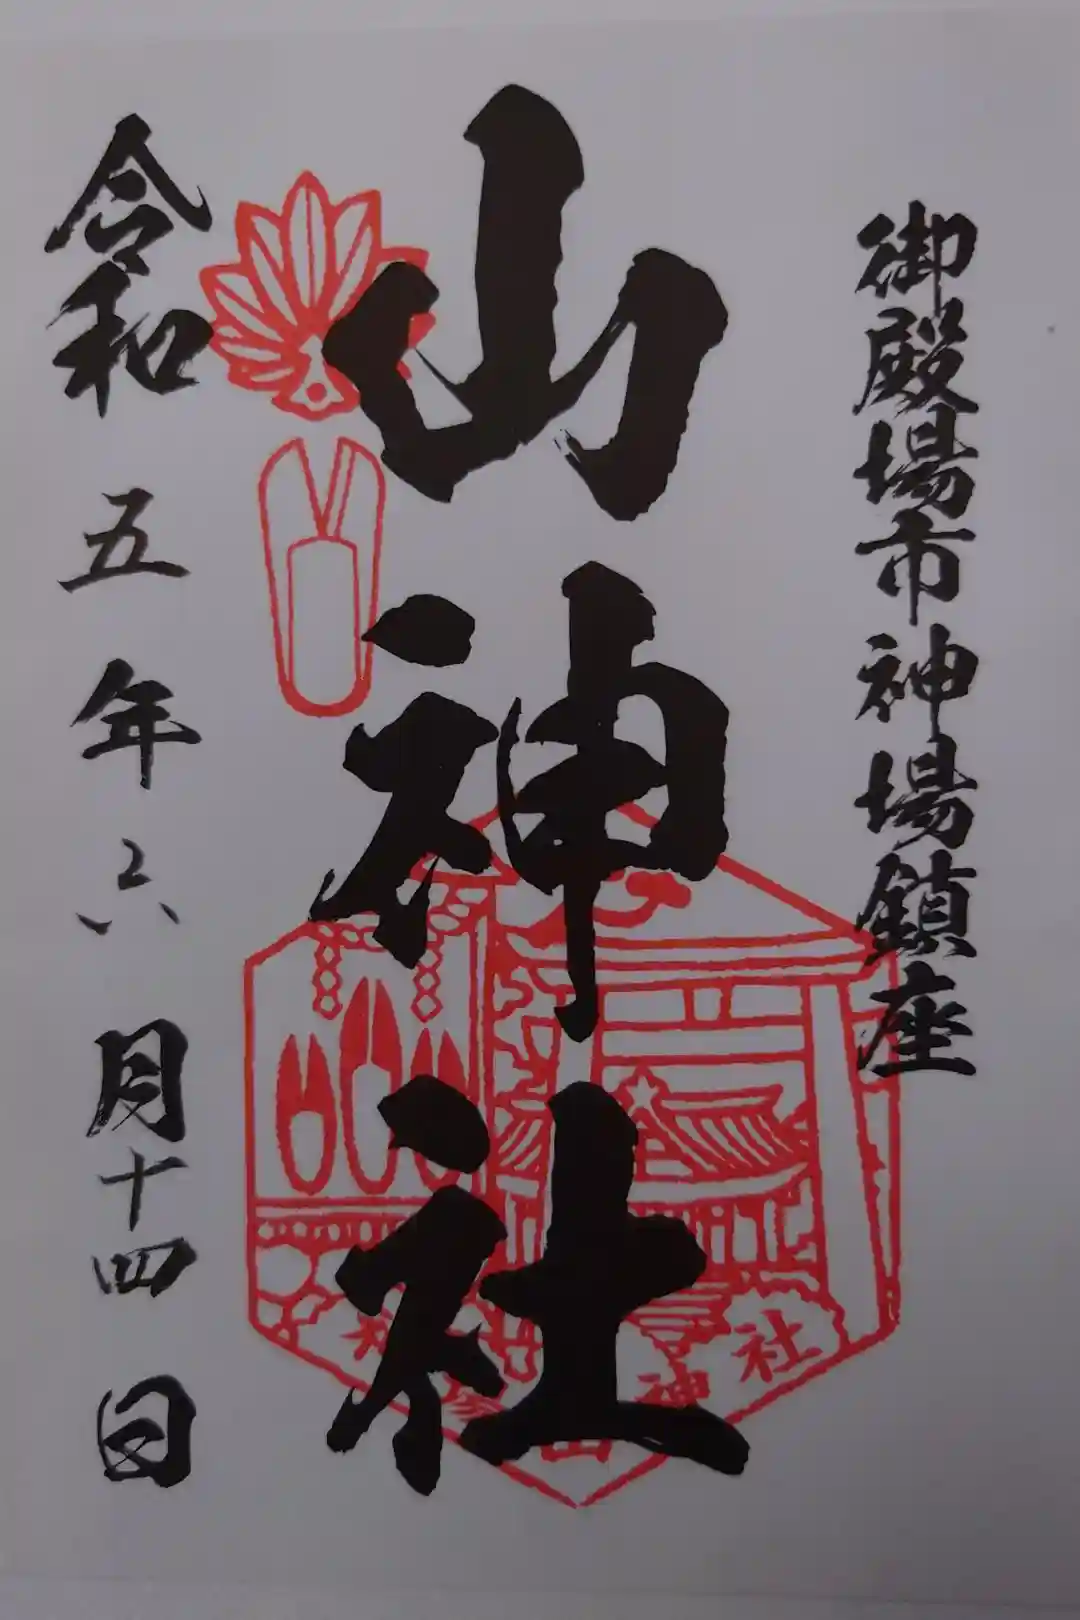 御殿場市神場鎮座
山神社
令和五年六月十四日
山神社